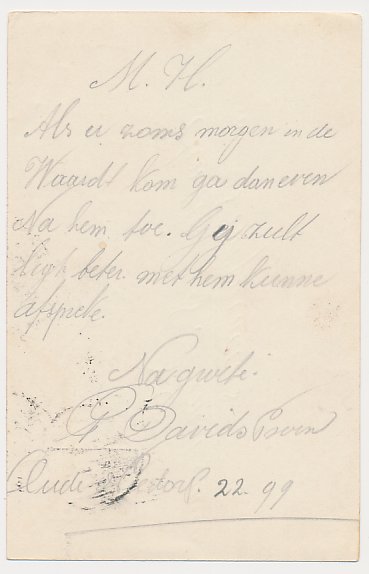 M. H.
Als u zoms morgen in de
Waardt kom ga dan even
Na hem toe. Gij zult
ligt beter met hem kunne
afspreke.
Na groete.
P. Davids
Oude 22. 99